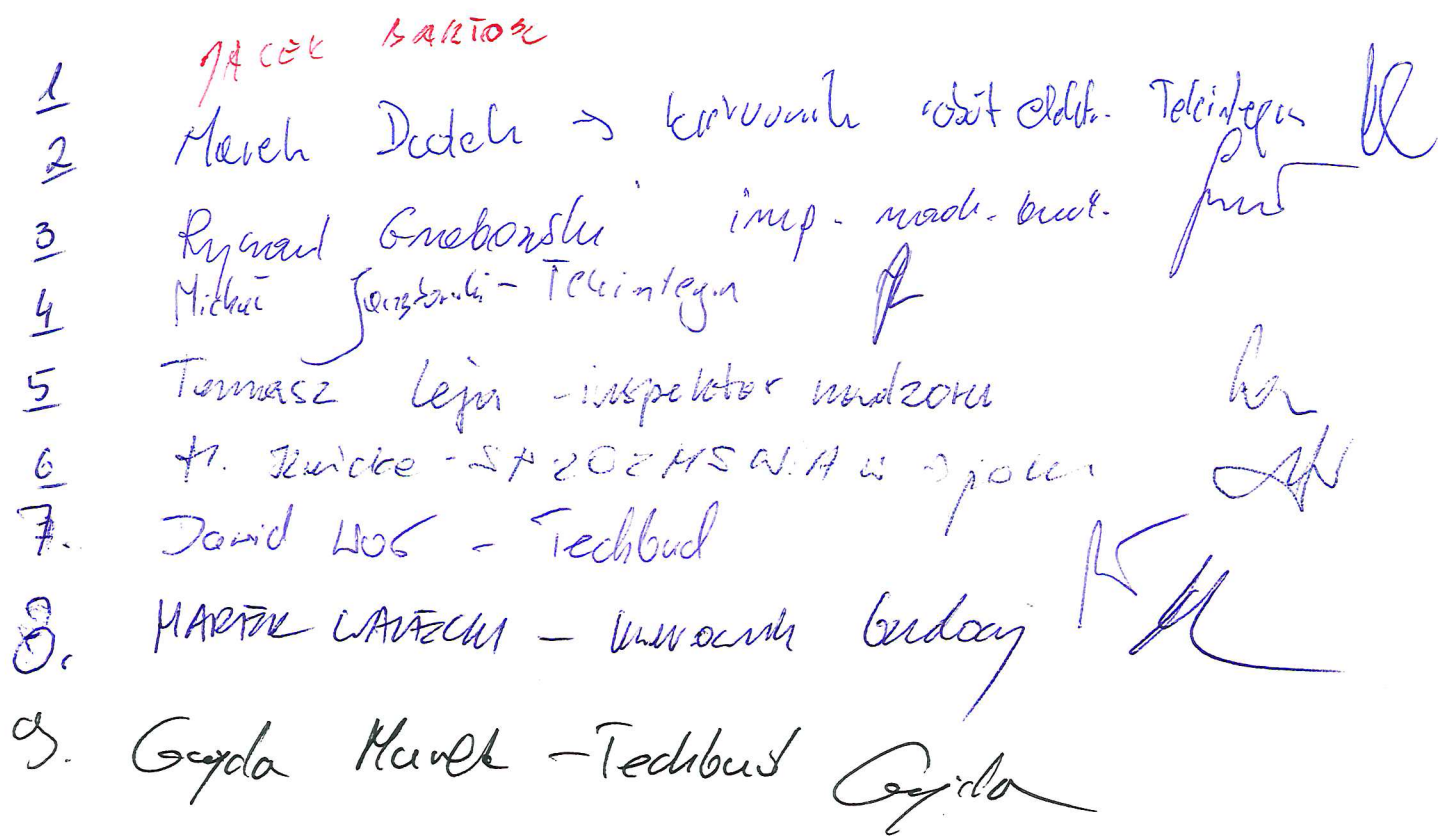 1 JACEK BARTOSZ
2 Marek Dudek → kierownik robót elektr. Tekintegra
3 Ryszard Grabowski insp. nadz. bud.
4 Michał - Tekintegra
5 Tomasz Leja - inspektor nadzoru
6 - SP ZOZ MSWiA w
7. Dawid Woś - Techbud
8. MAREK WAŁECKI - kierownik budowy
9. Gajda Marek - Techbud Gajda